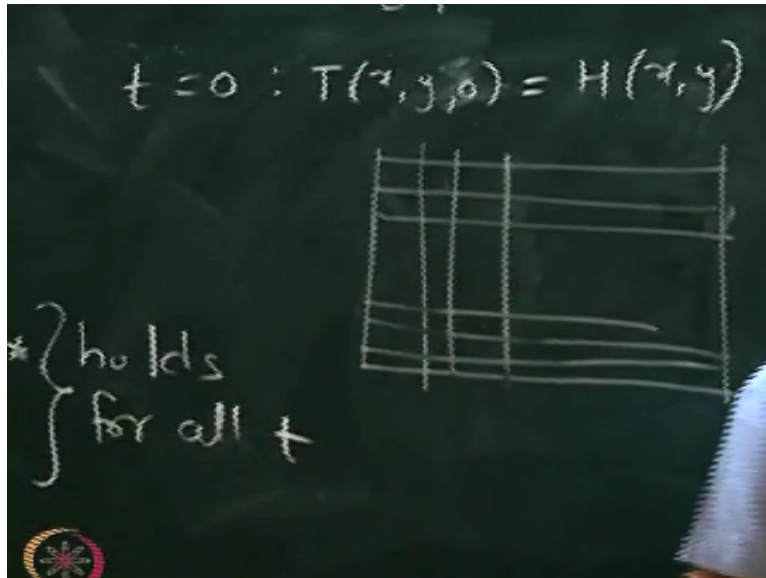 t = 0 : T(x, y, 0) = H(x, y)
* { holds
for all t